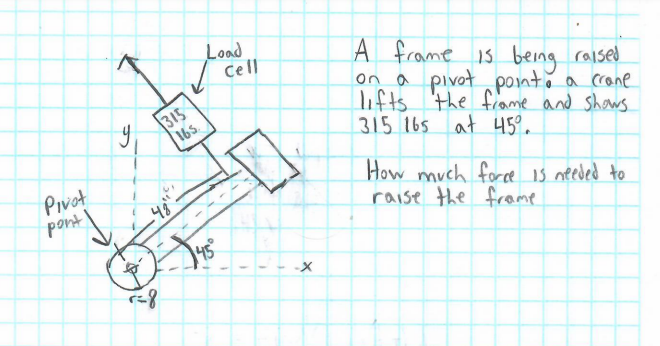 Load
Cell
A frame is being raised
on a pivot point. a crane
lifts the frame and shows
315 lbs at 45°.
How much force is needed to
raise the frame
315
lbs.
y
Pivot
point
48"
45°
x
r=8